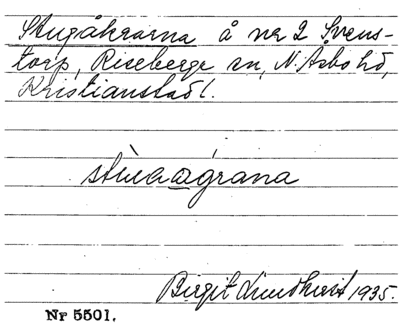 Stugåkrarna å nr 2 Svens-
torp, Riseberga sn, N. Åsbo hd,
Kristianstad l.
Birgit Lindkvist 1935.
Nr 5501.